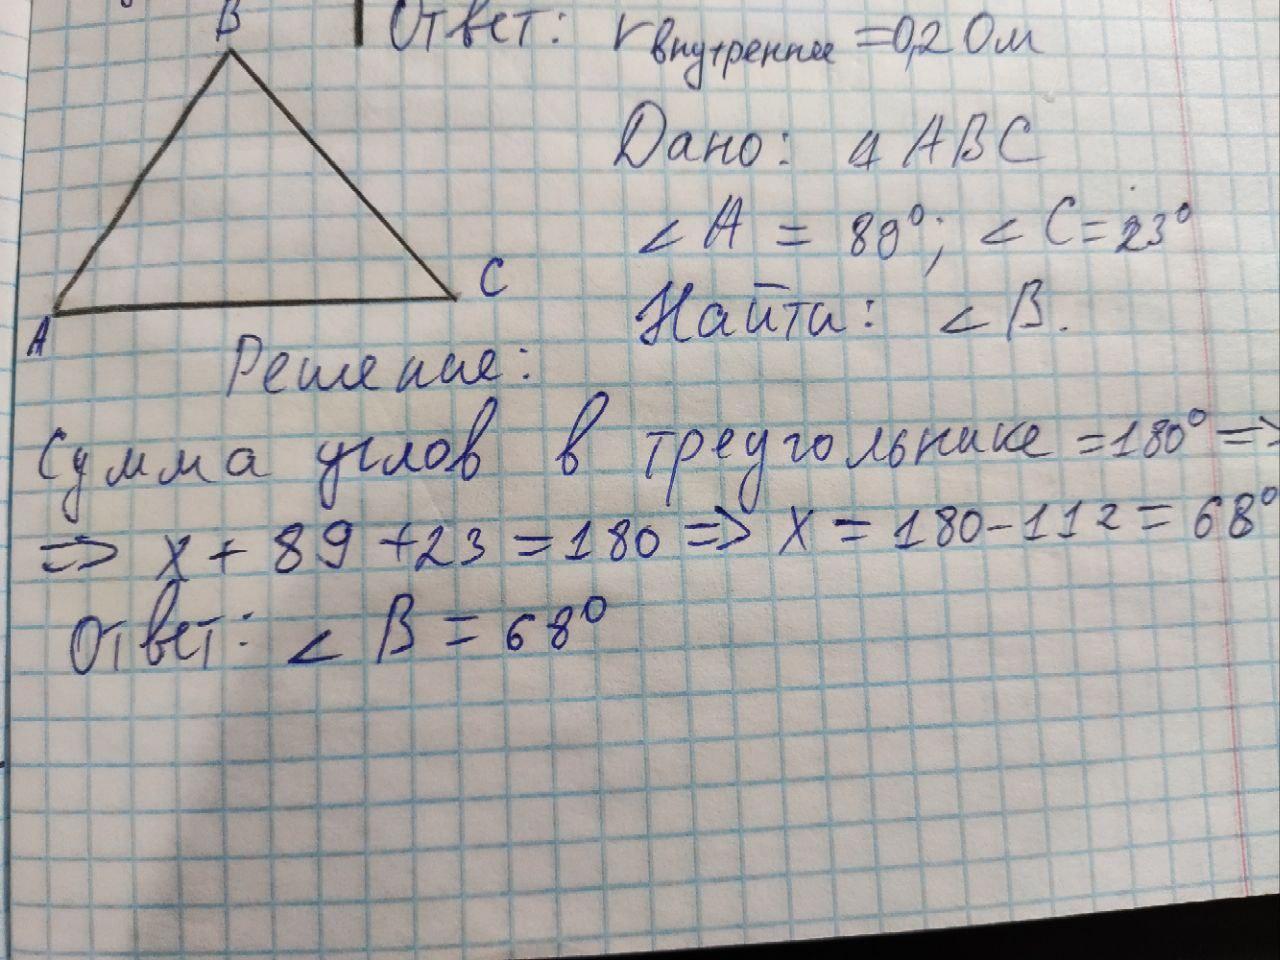 Ответ: rвнутреннее = 0,2 Ом
B
Дано: △ ABC
∠A = 89°; ∠C = 23°
C
Найти: ∠B.
A
Решение:
Сумма углов в треугольнике = 180° =>
=> x + 89 + 23 = 180 => x = 180 - 112 = 68°
Ответ: ∠B = 68°